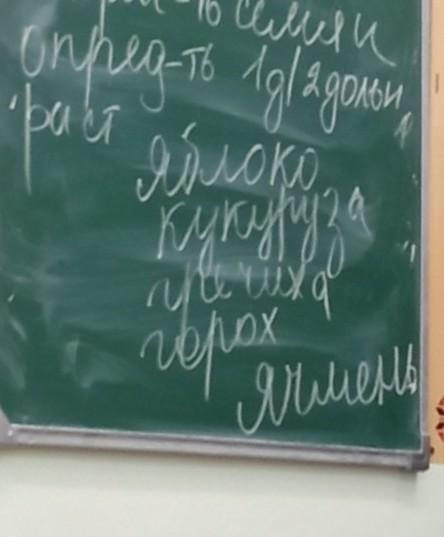 семян
опред-ть 1д/2дольн
раст
яблоко
кукуруза
гречиха
горох
ячмень